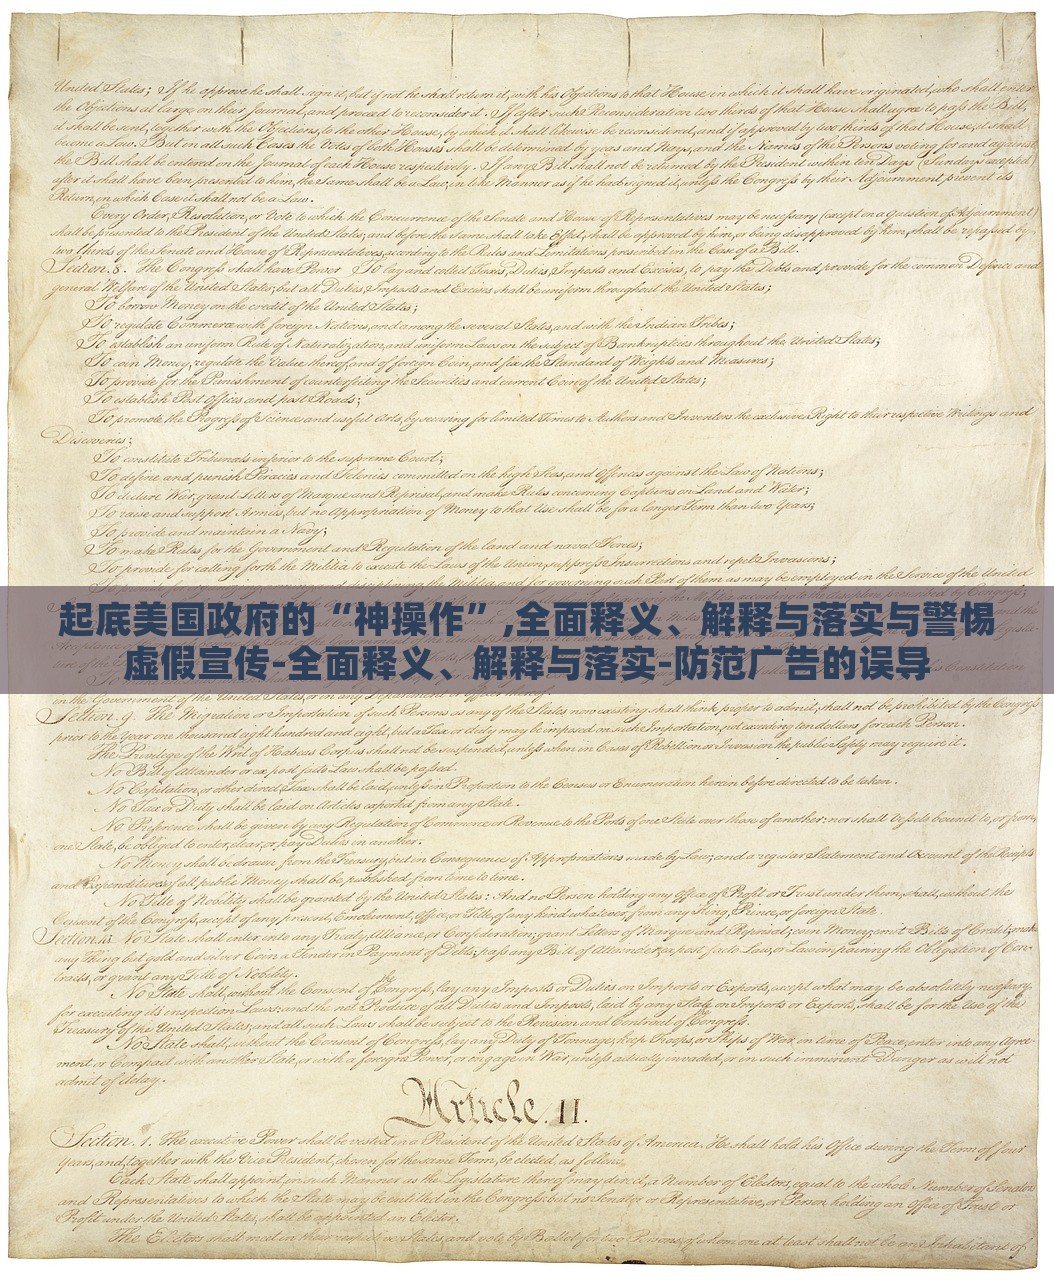 United States; If he approve he shall sign it, but if not he shall return it, with his Objections to that House in which it shall have originated, who shall enter
the Objections at large on their Journal, and proceed to reconsider it. If after such Reconsideration two thirds of that House shall agree to pass the Bill,
it shall be sent, together with the Objections, to the other House, by which it shall likewise be reconsidered, and if approved by two thirds of that House, it shall
become a Law. But in all such Cases the Votes of both Houses shall be determined by yeas and Nays, and the Names of the Persons voting for and against
the Bill shall be entered on the Journal of each House respectively. If any Bill shall not be returned by the President within ten Days (Sundays excepted)
after it shall have been presented to him, the Same shall be a Law, in like Manner as if he had signed it, unless the Congress by their Adjournment prevent its
Return, in which Case it shall not be a Law.
Every Order, Resolution, or Vote to which the Concurrence of the Senate and House of Representatives may be necessary (except on a question of Adjournment)
shall be presented to the President of the United States; and before the Same shall take Effect, shall be approved by him, or being disapproved by him, shall be repassed by
two thirds of the Senate and House of Representatives, according to the Rules and Limitations prescribed in the Case of a Bill.
Section. 8. The Congress shall have Power To lay and collect Taxes, Duties, Imposts and Excises, to pay the Debts and provide for the common Defence and
general Welfare of the United States; but all Duties, Imposts and Excises shall be uniform throughout the United States;
To borrow Money on the credit of the United States;
To regulate Commerce with foreign Nations, and among the several States, and with the Indian Tribes;
To establish an uniform Rule of Naturalization, and uniform Laws on the subject of Bankruptcies throughout the United States;
To coin Money, regulate the Value thereof, and of foreign Coin, and fix the Standard of Weights and Measures;
To provide for the Punishment of counterfeiting the Securities and current Coin of the United States;
To establish Post Offices and post Roads;
To promote the Progress of Science and useful Arts, by securing for limited Times to Authors and Inventors the exclusive Right to their respective Writings and
Discoveries;
To constitute Tribunals inferior to the supreme Court;
To define and punish Piracies and Felonies committed on the high Seas, and Offences against the Law of Nations;
To declare War, grant Letters of Marque and Reprisal, and make Rules concerning Captures on Land and Water;
To raise and support Armies, but no Appropriation of Money to that Use shall be for a longer Term than two Years;
To provide and maintain a Navy;
To make Rules for the Government and Regulation of the land and naval Forces;
To provide for calling forth the Militia to execute the Laws of the Union, suppress Insurrections and repel Invasions;
起底美国政府的“神操作”,全面释义、解释与落实与警惕
虚假宣传-全面释义、解释与落实-防范广告的误导
in the Government of the United States, or in any Department or Officer thereof.
Section. 9. The Migration or Importation of such Persons as any of the States now existing shall think proper to admit, shall not be prohibited by the Congress
prior to the Year one thousand eight hundred and eight, but a Tax or duty may be imposed on such Importation, not exceeding ten dollars for each Person.
The Privilege of the Writ of Habeas Corpus shall not be suspended, unless when in Cases of Rebellion or Invasion the public Safety may require it.
No Bill of Attainder or ex post facto Law shall be passed.
No Capitation, or other direct, Tax shall be laid, unless in Proportion to the Census or Enumeration herein before directed to be taken.
No Tax or Duty shall be laid on Articles exported from any State.
No Preference shall be given by any Regulation of Commerce or Revenue to the Ports of one State over those of another: nor shall Vessels bound to, or from,
one State, be obliged to enter, clear, or pay Duties in another.
No Money shall be drawn from the Treasury, but in Consequence of Appropriations made by Law; and a regular Statement and Account of the Receipts
and Expenditures of all public Money shall be published from time to time.
No Title of Nobility shall be granted by the United States: And no Person holding any Office of Profit or Trust under them, shall, without the
Consent of the Congress, accept of any present, Emolument, Office, or Title, of any kind whatever, from any King, Prince, or foreign State.
Section. 10. No State shall enter into any Treaty, Alliance, or Confederation; grant Letters of Marque and Reprisal; coin Money; emit Bills of Credit; make
any Thing but gold and silver Coin a Tender in Payment of Debts; pass any Bill of Attainder, ex post facto Law, or Law impairing the Obligation of Con-
tracts, or grant any Title of Nobility.
No State shall, without the Consent of the Congress, lay any Imposts or Duties on Imports or Exports, except what may be absolutely necessary
for executing its inspection Laws: and the net Produce of all Duties and Imposts, laid by any State on Imports or Exports, shall be for the Use of the
Treasury of the United States; and all such Laws shall be subject to the Revision and Controul of the Congress.
No State shall, without the Consent of Congress, lay any Duty of Tonnage, keep Troops, or Ships of War in time of Peace, enter into any Agree-
ment or Compact with another State, or with a foreign Power, or engage in War, unless actually invaded, or in such imminent Danger as will not
admit of delay.
Article. II.
Section. 1. The executive Power shall be vested in a President of the United States of America. He shall hold his Office during the Term of four
Years, and, together with the Vice President, chosen for the same Term, be elected, as follows
Each State shall appoint, in such Manner as the Legislature thereof may direct, a Number of Electors, equal to the whole Number of Senators
and Representatives to which the State may be entitled in the Congress: but no Senator or Representative, or Person holding an Office of Trust or
Profit under the United States, shall be appointed an Elector.
The Electors shall meet in their respective States, and vote by Ballot for two Persons, of whom one at least shall not be an Inhabitant of